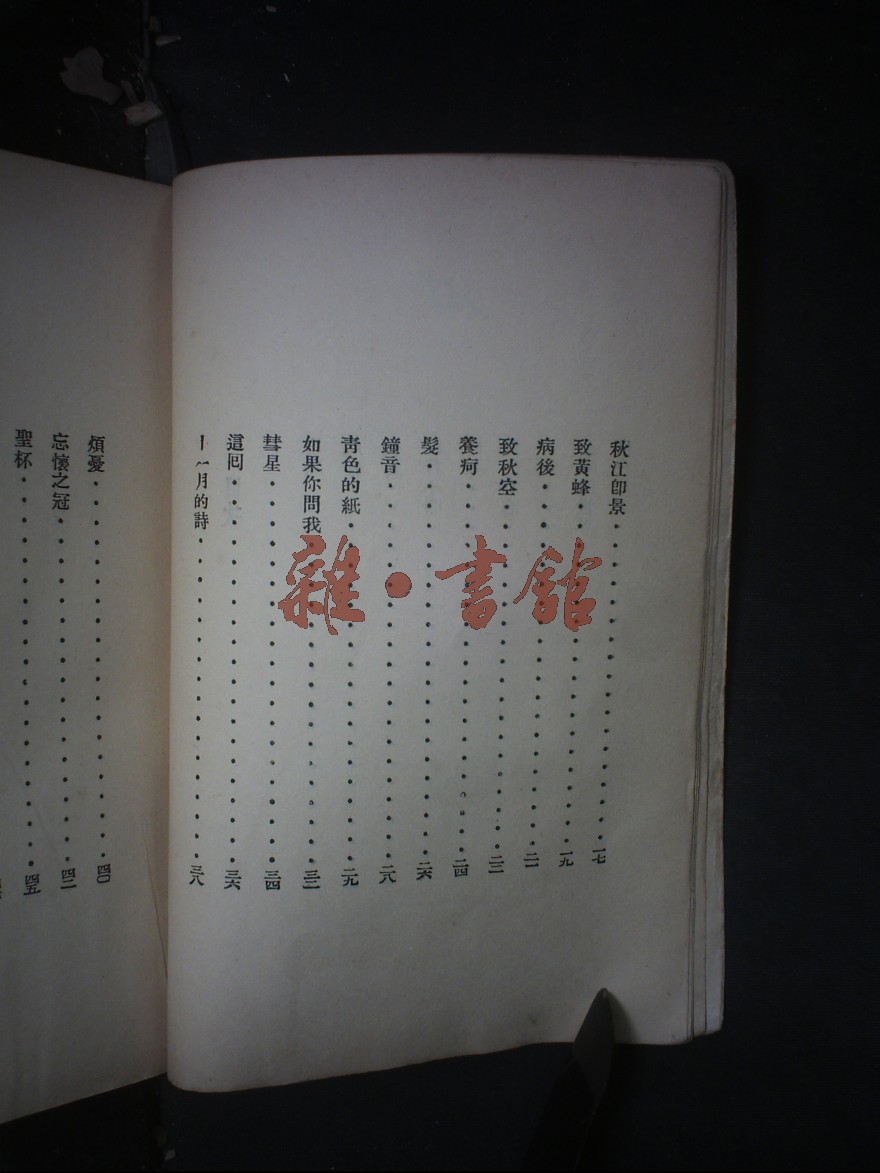 秋江卽景・・・・・・・・・・・・・・・・・一七
致黃蜂・・・・・・・・・・・・・・・・・一九
病後・・・・・・・・・・・・・・・・・・二一
致秋空・・・・・・・・・・・・・・・・・二二
養疴・・・・・・・・・・・・・・・・・・二四
髮・・・・・・・・・・・・・・・・・・・二六
鐘音・・・・・・・・・・・・・・・・・・二八
靑色的紙・・・・・・・・・・・・・・・・二九
如果你問我・・・・・・・・・・・・・・・三二
彗星・・・・・・・・・・・・・・・・・・三四
這囘・・・・・・・・・・・・・・・・・・三六
十一月的詩・・・・・・・・・・・・・・・三八
煩憂・・・・・・・・・・・・・・・・・・四〇
忘懷之冠・・・・・・・・・・・・・・・・四二
聖杯・・・・・・・・・・・・・・・・・・四五
雜・書館